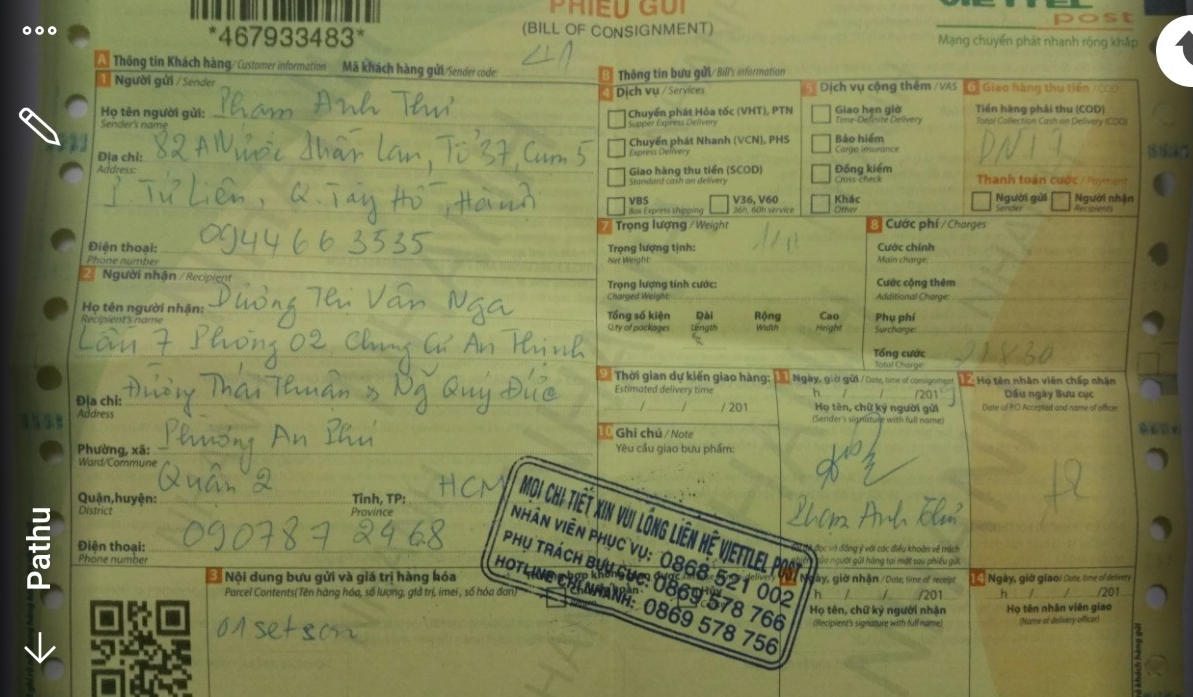 PHIẾU GỬI
(BILL OF CONSIGNMENT)
*467933483*
VIETTEL
post
Mạng chuyển phát nhanh rộng khắp
A Thông tin Khách hàng/Customer information Mã khách hàng gửi/Sender code:
1 Người gửi/Sender
Họ tên người gửi: Phạm Anh Thư
Sender's name
Địa chỉ: 82A Nước Phần Lan, Tổ 37, Cụm 5
Address:
Tứ Liên, Q. Tây Hồ, Hà Nội
Điện thoại: 0944663535
Phone number
2 Người nhận/Recipient
Họ tên người nhận: Dương Thị Vân Nga
Recipient's name
Lầu 7 Phòng 02 Chung Cư An Thịnh
Địa chỉ: Đường Thái Thuận x Ng Quý Đức
Address
Phường, xã: Phường An Phú
Ward/Commune
Quận,huyện: Quận 2 Tỉnh, TP: HCM
District Province
Điện thoại: 090787 2468
Phone number
3 Nội dung bưu gửi và giá trị hàng hóa
Parcel Contents(Tên hàng hóa, số lượng, giá trị, imei, số hóa đơn)
01 set son
B Thông tin bưu gửi/Bill's information
4 Dịch vụ/Services
Chuyển phát Hỏa tốc (VHT), PTN
Supper Express Delivery
Chuyển phát Nhanh (VCN), PHS
Express Delivery
Giao hàng thu tiền (SCOD)
Standard cash on delivery
VBS V36, V60
Box Express shipping 36h, 60h service
5 Dịch vụ cộng thêm/VAS
Giao hẹn giờ
Time-Definite Delivery
Bảo hiểm
Cargo insurance
Đồng kiểm
Cross-check
Khác
Other
6 Giao hàng thu tiền/COD
Tiền hàng phải thu (COD)
Total Collection Cash on Delivery (COD)
Thanh toán cước/Payment
Người gửi Người nhận
Sender Recipients
7 Trọng lượng/Weight
Trọng lượng tịnh:
Net Weight:
Trọng lượng tính cước:
Charged Weight:
Tổng số kiện Dài Rộng Cao
Q.ty of packages Length Width Height
8 Cước phí/Charges
Cước chính
Main charge:
Cước cộng thêm
Additional Charge:
Phụ phí
Surcharge:
Tổng cước
Total Charge:
9 Thời gian dự kiến giao hàng:
Estimated delivery time
/ / /201
10 Ghi chú/Note
Yêu cầu giao bưu phẩm:
11 Ngày, giờ gửi/Date, time of consignment
h / / /2019
Họ tên, chữ ký người gửi
(Sender's signature with full name)
Phạm Anh Thư
12 Họ tên nhân viên chấp nhận
Dấu ngày Bưu cục
Date of PO Accepted and name of officer
MỌI CHI TIẾT XIN VUI LÒNG LIÊN HỆ VIETTEL POST
NHÂN VIÊN PHỤC VỤ: 0868 521 002
PHỤ TRÁCH BƯU CỤC: 0869 578 766
HOTLINE CHI NHÁNH: 0869 578 756
Ngày, giờ nhận/Date, time of receipt
h / / /201
Họ tên, chữ ký người nhận
(Recipient's signature with full name)
14 Ngày, giờ giao/Date, time of delivery
h / / /201
Họ tên nhân viên giao
(Name of delivery officer)
Pathu